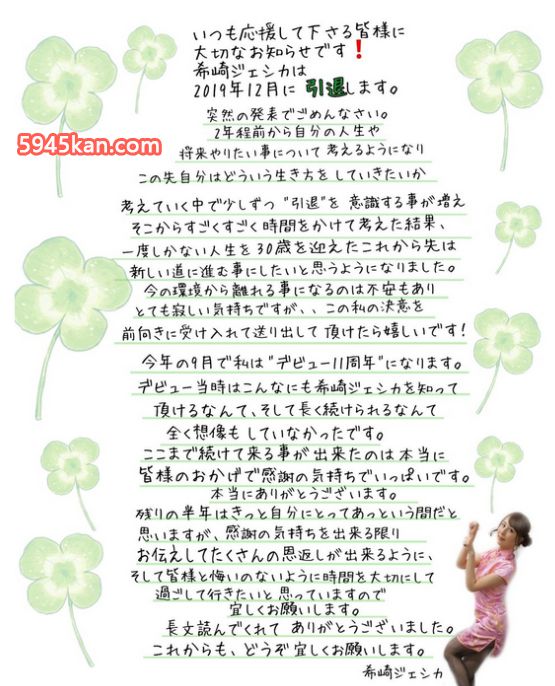 いつも応援して下さる皆様に
大切なお知らせです❗
希崎ジェシカは
2019年12月に 引退します。
突然の発表でごめんなさい。
5945kan.com
2年程前から自分の人生や
将来やりたい事について考えるようになり
この先自分はどういう生き方をしていきたいか
考えていく中で少しずつ"引退"を意識する事が増え
そこからすごくすごく時間をかけて考えた結果、
一度しかない人生を30歳を迎えたこれから先は
新しい道に進む事にしたいと思うようになりました。
今の環境から離れる事になるのは不安もあり
とても寂しい気持ちですが、、この私の決意を
前向きに受け入れて送り出して頂けたら嬉しいです!
今年の9月で私は"デビュー11周年"になります。
デビュー当時はこんなにも希崎ジェシカを知って
頂けるなんて、そして長く続けられるなんて
全く想像もしていなかったです。
ここまで続けて来る事が出来たのは本当に
皆様のおかげで感謝の気持ちでいっぱいです。
本当にありがとうございます。
残りの半年はきっと自分にとってあっという間だと
思いますが、感謝の気持ちを出来る限り
お伝えしてたくさんの恩返しが出来るように、
そして皆様と悔いのないように時間を大切にして
過ごして行きたいと思っていますので
宜しくお願いします。
長文読んでくれてありがとうございました。
これからも、どうぞ宜しくお願いします。
希崎ジェシカ